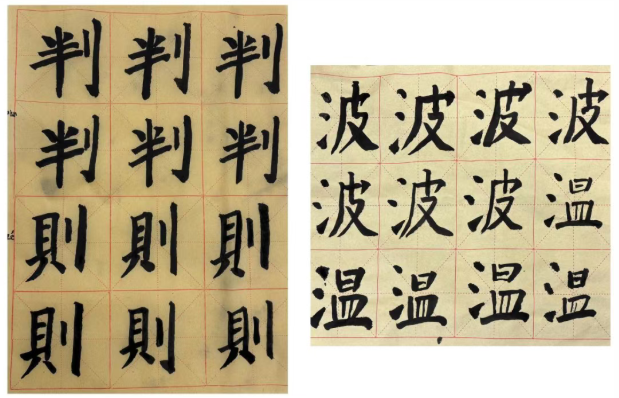 判判判
判判判
則則則
則則則
波波波波
波波波温
温温温温